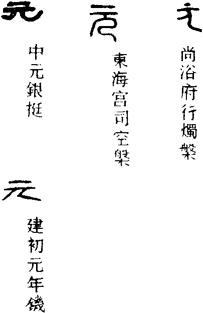 元
尚浴府行燭槃
元
東海宮司空槃
元
中元銀挺
元
建初元年鐖